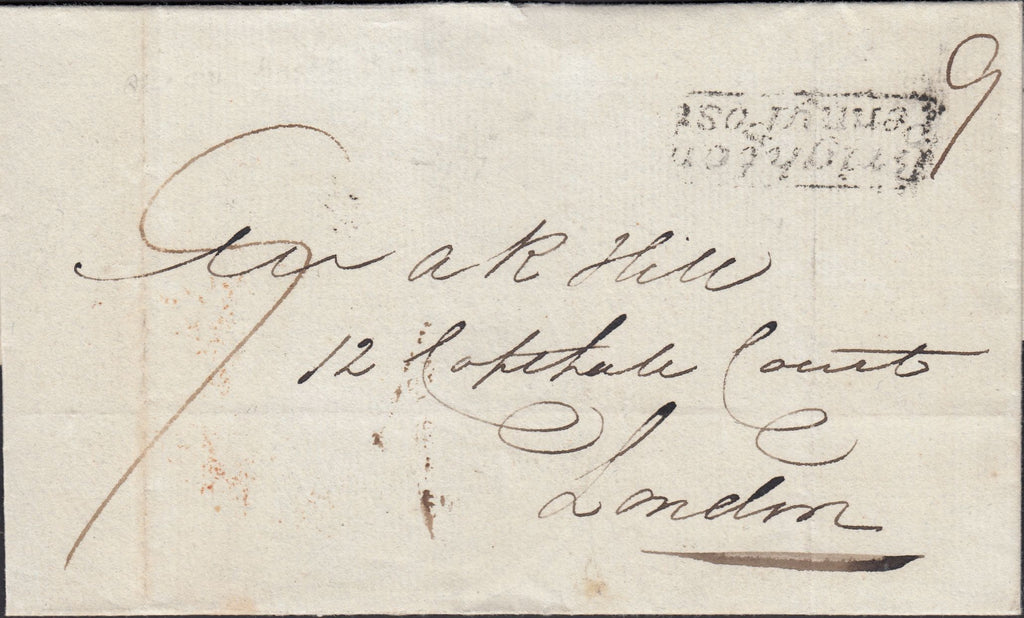 9
Brighton
Penny Post
9
a R Hill
12 Copthall Court
London